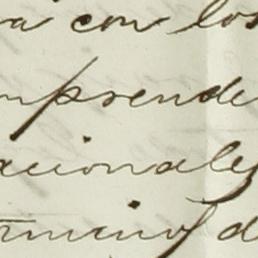 a con los
mprende
acionales
rminos d